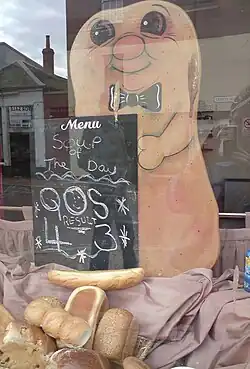 Menu
Soup
of
The Day
QOS
RESULT
4 3